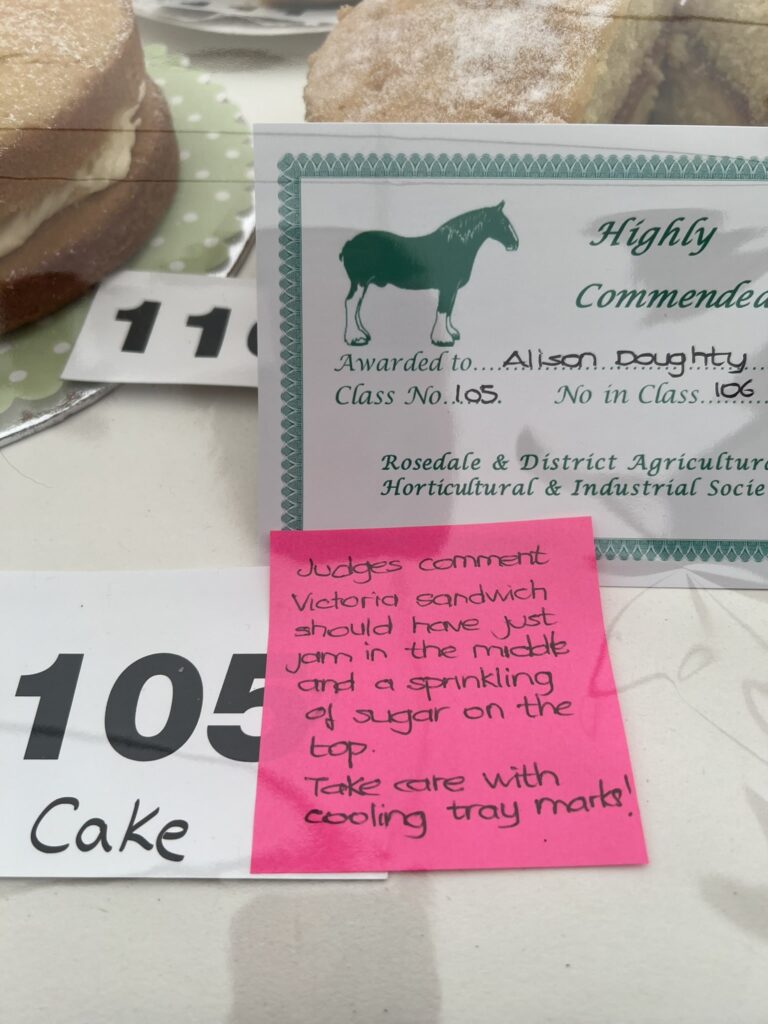 110
Highly
Commended
Awarded to....Alison Doughty
Class No..105. No in Class.......106
Rosedale & District Agricultura
Horticultural & Industrial Socie
Judges comment
Victoria sandwich
should have just
jam in the middle
and a sprinkling
of sugar on the
top.
Take care with
cooling tray marks!
105
Cake